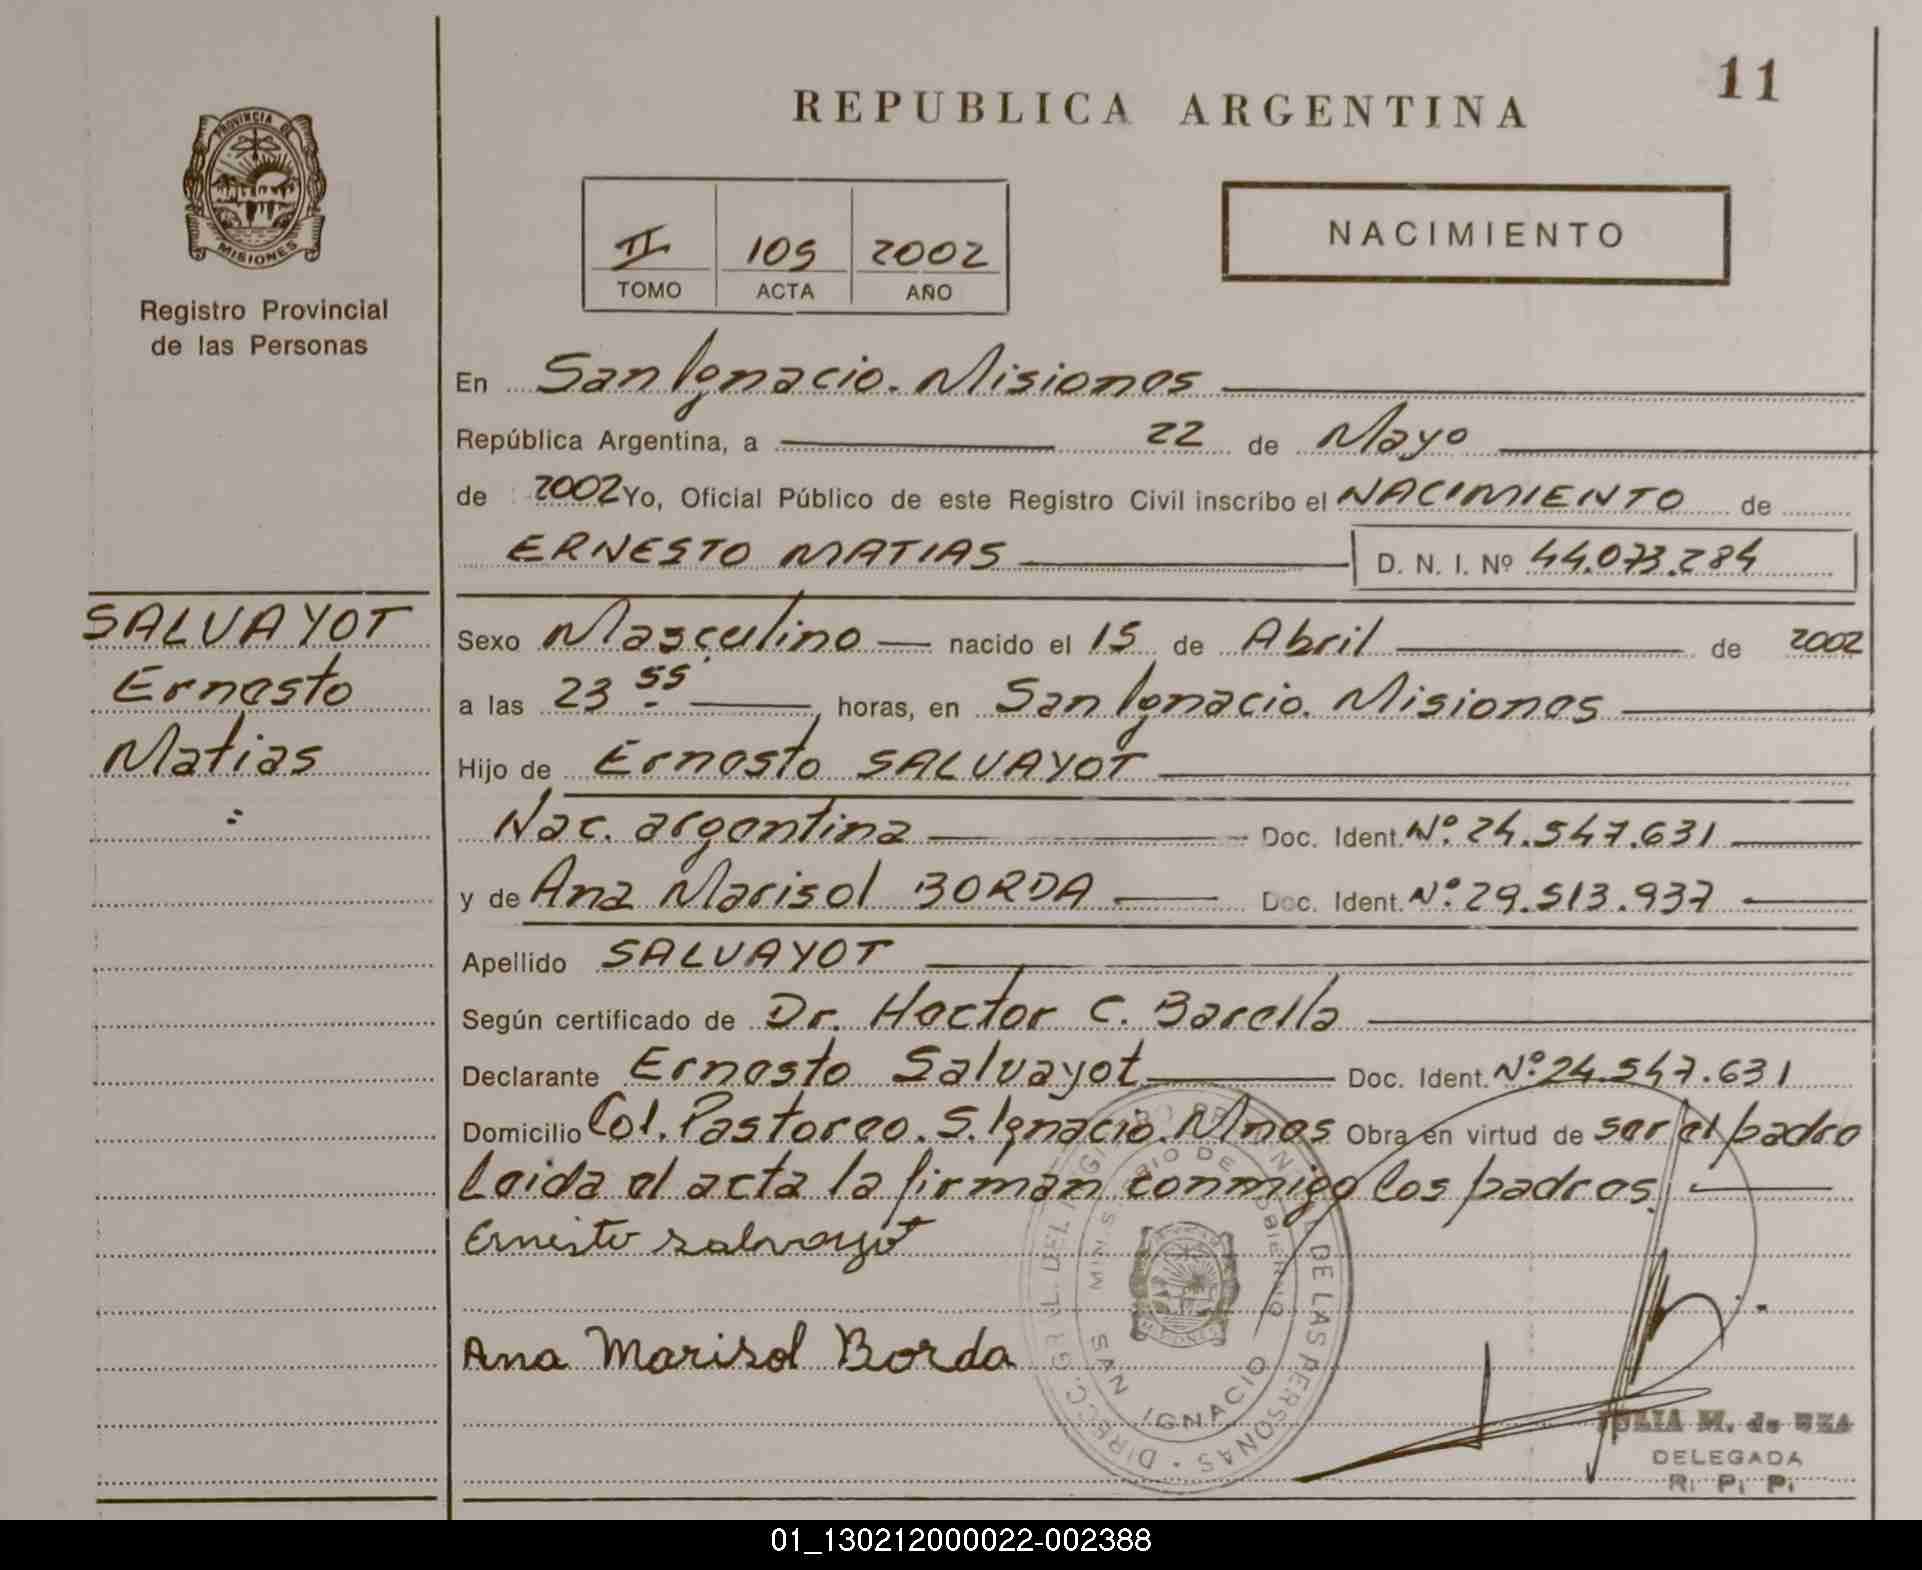 11
REPUBLICA ARGENTINA
PROVINCIA DE
MISIONES
Registro Provincial
de las Personas
II 105 2002
TOMO ACTA AÑO
NACIMIENTO
En San Ignacio. Misiones
República Argentina, a 22 de Mayo
de 2002 Yo, Oficial Público de este Registro Civil inscribo el NACIMIENTO de
ERNESTO MATIAS D. N. I. Nº 44.073.284
SALVAYOT
Ernesto
Matias
Sexo Masculino nacido el 15 de Abril de 2002
a las 23 55 horas, en San Ignacio. Misiones
Hijo de Ernesto SALVAYOT
Nac. argentina Doc. Ident. Nº 24.547.631
y de Ana Marisol BORDA Doc. Ident. Nº 29.513.937
Apellido SALVAYOT
Según certificado de Dr. Hector C. Barella
Declarante Ernesto Salvayot Doc. Ident. Nº 24.547.631
Domicilio Col. Pastoreo. S. Ignacio. Mnes Obra en virtud de ser el padre
Leida el acta la firman conmigo los padres.
Ernesto Salvayot
Ana Marisol Borda
DIRECC. GRAL. DEL REGISTRO PROVINCIAL DE LAS PERSONAS
MINISTERIO DE GOBIERNO
SAN IGNACIO
JULIA M. de
DELEGADA
R. P. P.
01_130212000022-002388